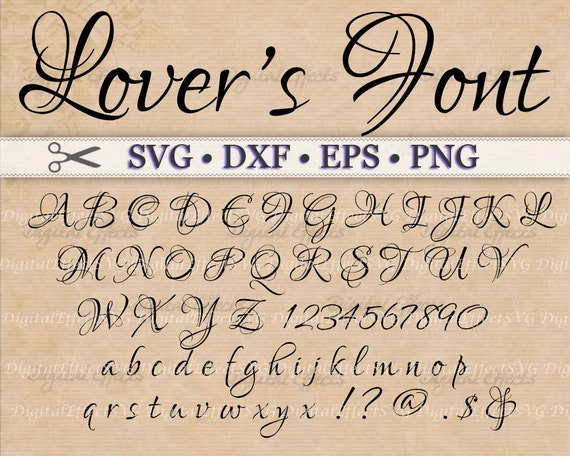 Lover's Font
SVG • DXF • EPS • PNG
A B C D E F G H I J K L
M N O P Q R S T U V
W X Y Z 1 2 3 4 5 6 7 8 9 0
a b c d e f g h i j k l m n o p
q r s t u v w x y x ! ? @ . $ &
DigitalEffectSVG